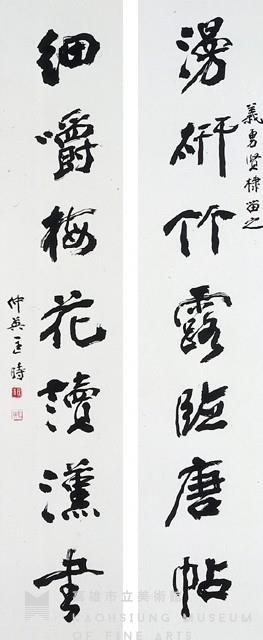 漫研竹露臨唐帖
義勇賢棣留之
細嚼梅花讀漢書
仲英匡時
高雄市立美術館
KAOHSIUNG MUSEUM
OF FINE ARTS